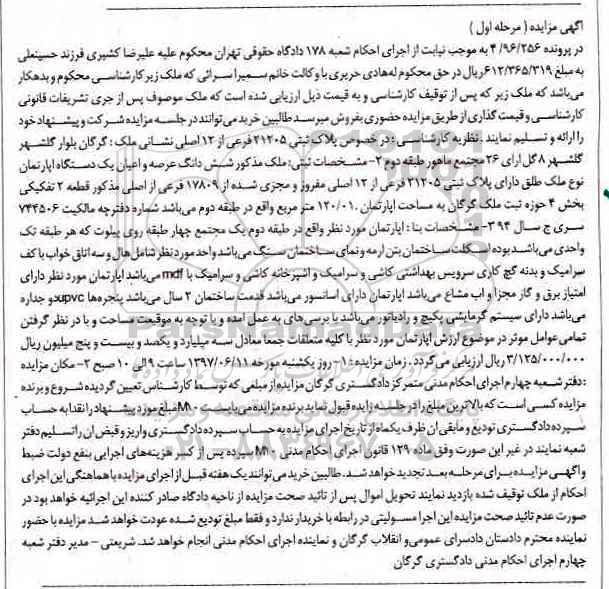 آگهی مزایده ( مرحله اول )
در پرونده ۹۶/۲۵۶/ ۴ به موجب نیابت از اجرای احکام شعبه ۱۷۸ دادگاه حقوقی تهران محکوم علیه علیرضا کشیری فرزند حسینعلی
به مبلغ ۶۱۲/۳۶۵/۳۱۹ ریال در حق محکوم له هادی حریری با وکالت خانم سمیرا سرائی که ملک زیر کارشناسی محکوم و بدهکار
می‌باشد که ملک زیر که پس از توقیف کارشناسی و به قیمت ذیل ارزیابی شده است که ملک موصوف پس از جری تشریفات قانونی
کارشناسی و قیمت گذاری از طریق مزایده حضوری بفروش میرسد طالبین خرید می‌توانند در جلسه مزایده شرکت و پیشنهاد خود
را ارائه و تسلیم نمایند . نظریه کارشناسی : در خصوص پلاک ثبتی ۲۱۲۰۵ فرعی از ۱۲ اصلی نشانی ملک : گرگان بلوار گلشهر
گلشهر ۸ گل ارای ۲۶ مجتمع ماهور طبقه دوم ۲- مشخصات ثبتی: ملک مذکور شش دانگ عرصه و اعیان یک دستگاه اپارتمان
نوع ملک طلق دارای پلاک ثبتی ۲۱۲۰۵ فرعی از ۱۲ اصلی مفروز و مجزی شده از ۱۷۸۰۹ فرعی از اصلی مذکور قطعه ۲ تفکیکی
بخش ۴ حوزه ثبت ملک گرگان به مساحت اپارتمان ۱۲۰/۰۱ متر مربع واقع در طبقه دوم می‌باشد شماره دفترچه مالکیت ۷۴۳۵۰۶
سری ج سال ۹۴ ۳- مشخصات بنا : اپارتمان مورد نظر واقع در طبقه دوم یک مجتمع چهار طبقه روی پیلوت که هر طبقه تک
واحدی می‌باشد بوده اسکلت ساختمان بتن ارمه و نمای ساختمان سنگ می‌باشد واحد مورد نظر شامل هال و سه اتاق خواب با کف
سرامیک و بدنه گچ کاری سرویس بهداشتی کاشی و سرامیک و اشپزخانه کاشی و سرامیک با mdf می‌باشد اپارتمان مورد نظر دارای
امتیاز برق و گاز مجزا و اب مشاع می‌باشد اپارتمان دارای اسانسور می‌باشد قدمت ساختمان ۲ سال می‌باشد پنجره‌ها upvc دو جداره
می‌باشد دارای سیستم گرمایشی پکیج و رادیاتور می‌باشد با بررسی‌های به عمل آمده و با توجه به موقعیت مساحت و با در نظر گرفتن
تمامی عوامل موثر در موضوع ارزش اپارتمان مورد نظر با کلیه متعلقات جمعا معادل سه میلیارد و یکصد و بیست و پنج میلیون ریال
۳/۱۲۵/۰۰۰/۰۰۰ ریال ارزیابی می‌گردد . زمان مزایده : ۱- روز یکشنبه مورخه ۱۳۹۷/۰۶/۱۱ ساعت ۹ الی ۱۰ صبح ۲- مکان مزایده
: دفتر شعبه چهارم اجرای احکام مدنی متمرکز دادگستری گرگان مزایده از مبلغی که توسط کارشناس تعیین گردیده شروع و برنده
مزایده کسی است که بالاترین مبلغ را در جلسه زایده قبول نماید برنده مزایده می‌بایست ۱۰٪ مبلغ مورد پیشنهاد را نقدا به حساب
سپرده دادگستری تودیع و مابقی ان ظرف یکماه از تاریخ اجرای مزایده به حساب سپرده دادگستری واریز و قبض ان را تسلیم دفتر
شعبه نمایند در غیر این صورت وفق ماده ۱۲۹ قانون اجرای احکام مدنی ۱۰٪ سپرده پس از کسر هزینه‌های اجرایی بنفع دولت ضبط
و اگهی مزایده برای مرحله بعد تجدید خواهد شد. طالبین خرید می‌توانند یک هفته قبل از اجرای مزایده با هماهنگی این اجرای
احکام از ملک توقیف شده بازدید نمایند تحویل اموال پس از تائید صحت مزایده از ناحیه دادگاه صادر کننده این اجرائیه خواهد بود در
صورت عدم تائید صحت مزایده این اجرا مسولیتی در رابطه با خریدار ندارد و فقط مبلغ تودیع شده عودت خواهد شد مزایده با حضور
نماینده محترم دادستان دادسرای عمومی و انقلاب گرگان و نماینده اجرای احکام مدنی انجام خواهد شد. شریعتی – مدیر دفتر شعبه
چهارم اجرای احکام مدنی دادگستری گرگان